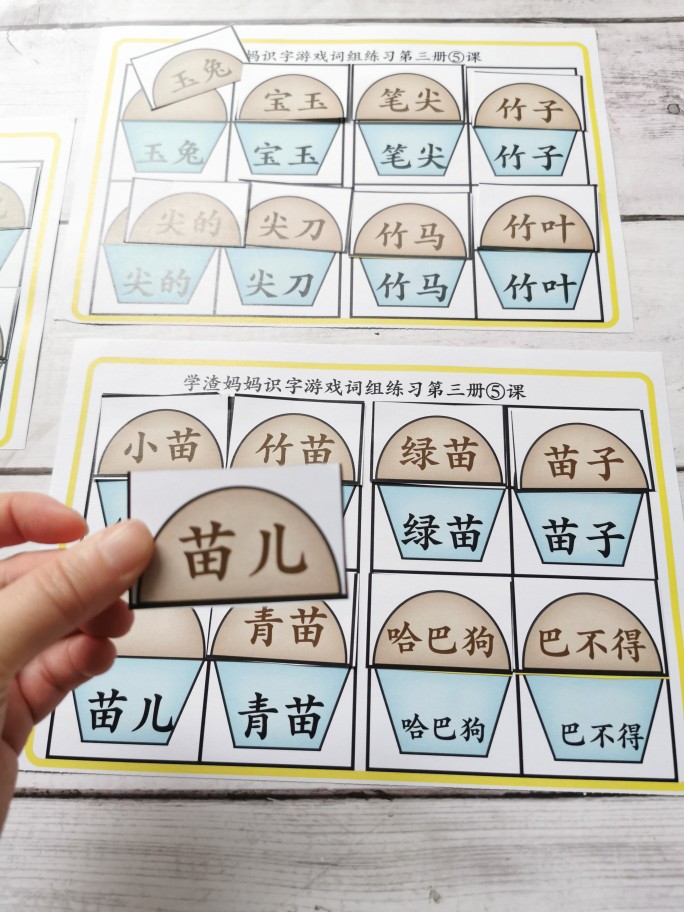 妈识字游戏词组练习第三册⑤课
玉兔 宝玉 笔尖 竹子
玉兔 宝玉 笔尖 竹子
尖的 尖刀 竹马 竹叶
尖的 尖刀 竹马 竹叶
学渣妈妈识字游戏词组练习第三册⑤课
小苗 竹苗 绿苗 苗子
绿苗 苗子
苗儿
青苗 哈巴狗 巴不得
苗儿 青苗 哈巴狗 巴不得